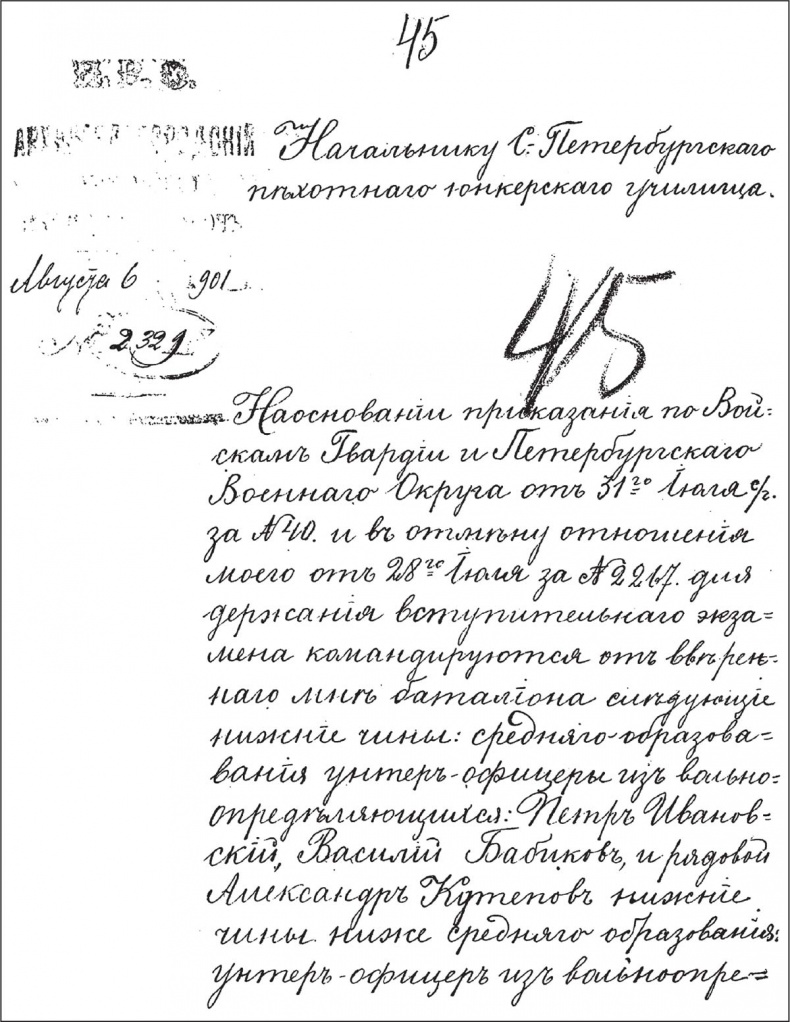 45
Начальнику С.-Петербургскаго
пѣхотнаго юнкерскаго училища.
Августа 6 901
№ 2329
45
На основаніи приказанія по Вой=
скамъ Гвардіи и Петербургскаго
Военнаго Округа отъ 31го Іюля с/г.
за № 40. и въ отмѣну отношенія
моего отъ 28го Іюля за № 2217. для
держанія вступительнаго экза=
мена командируются отъ ввѣрен=
наго мнѣ баталіона слѣдующіе
нижніе чины: средняго образова=
ванія унтеръ-офицеры изъ вольно=
опредѣляющихся: Петръ Иванов=
скій, Василій Бабиковъ, и рядовой
Александръ Кутеповъ нижніе
чины ниже средняго образованія:
унтеръ-офицеръ изъ вольноопре=